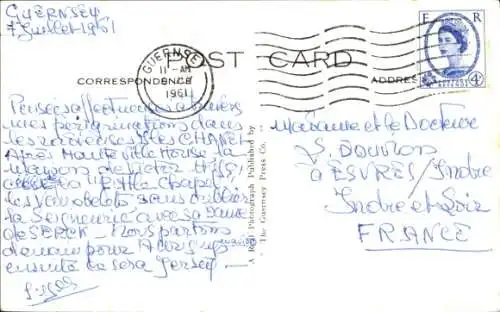 GUERNSEY
7 Juillet 1961
POST CARD
CORRESPONDENCE
ADDRESS
GUERNSEY
11 - AM
1961
E R
4D
Pensées affectueuses à travers
nos pérégrinations dans
les diverses Iles CHANEL
Après Hauteville House la
maison de Victor Hugo
la "Little Chapel"
les sans oublier
la Seigneurie avec sa Dame
de SERCK - Nous partons
demain pour Aurigny
ensuite ce sera Jersey -
Madame et le Docteur
S. DOURON
à ESVRES/Indre
Indre et Loir
FRANCE
A Real Photograph Published by
The Guernsey Press Co.